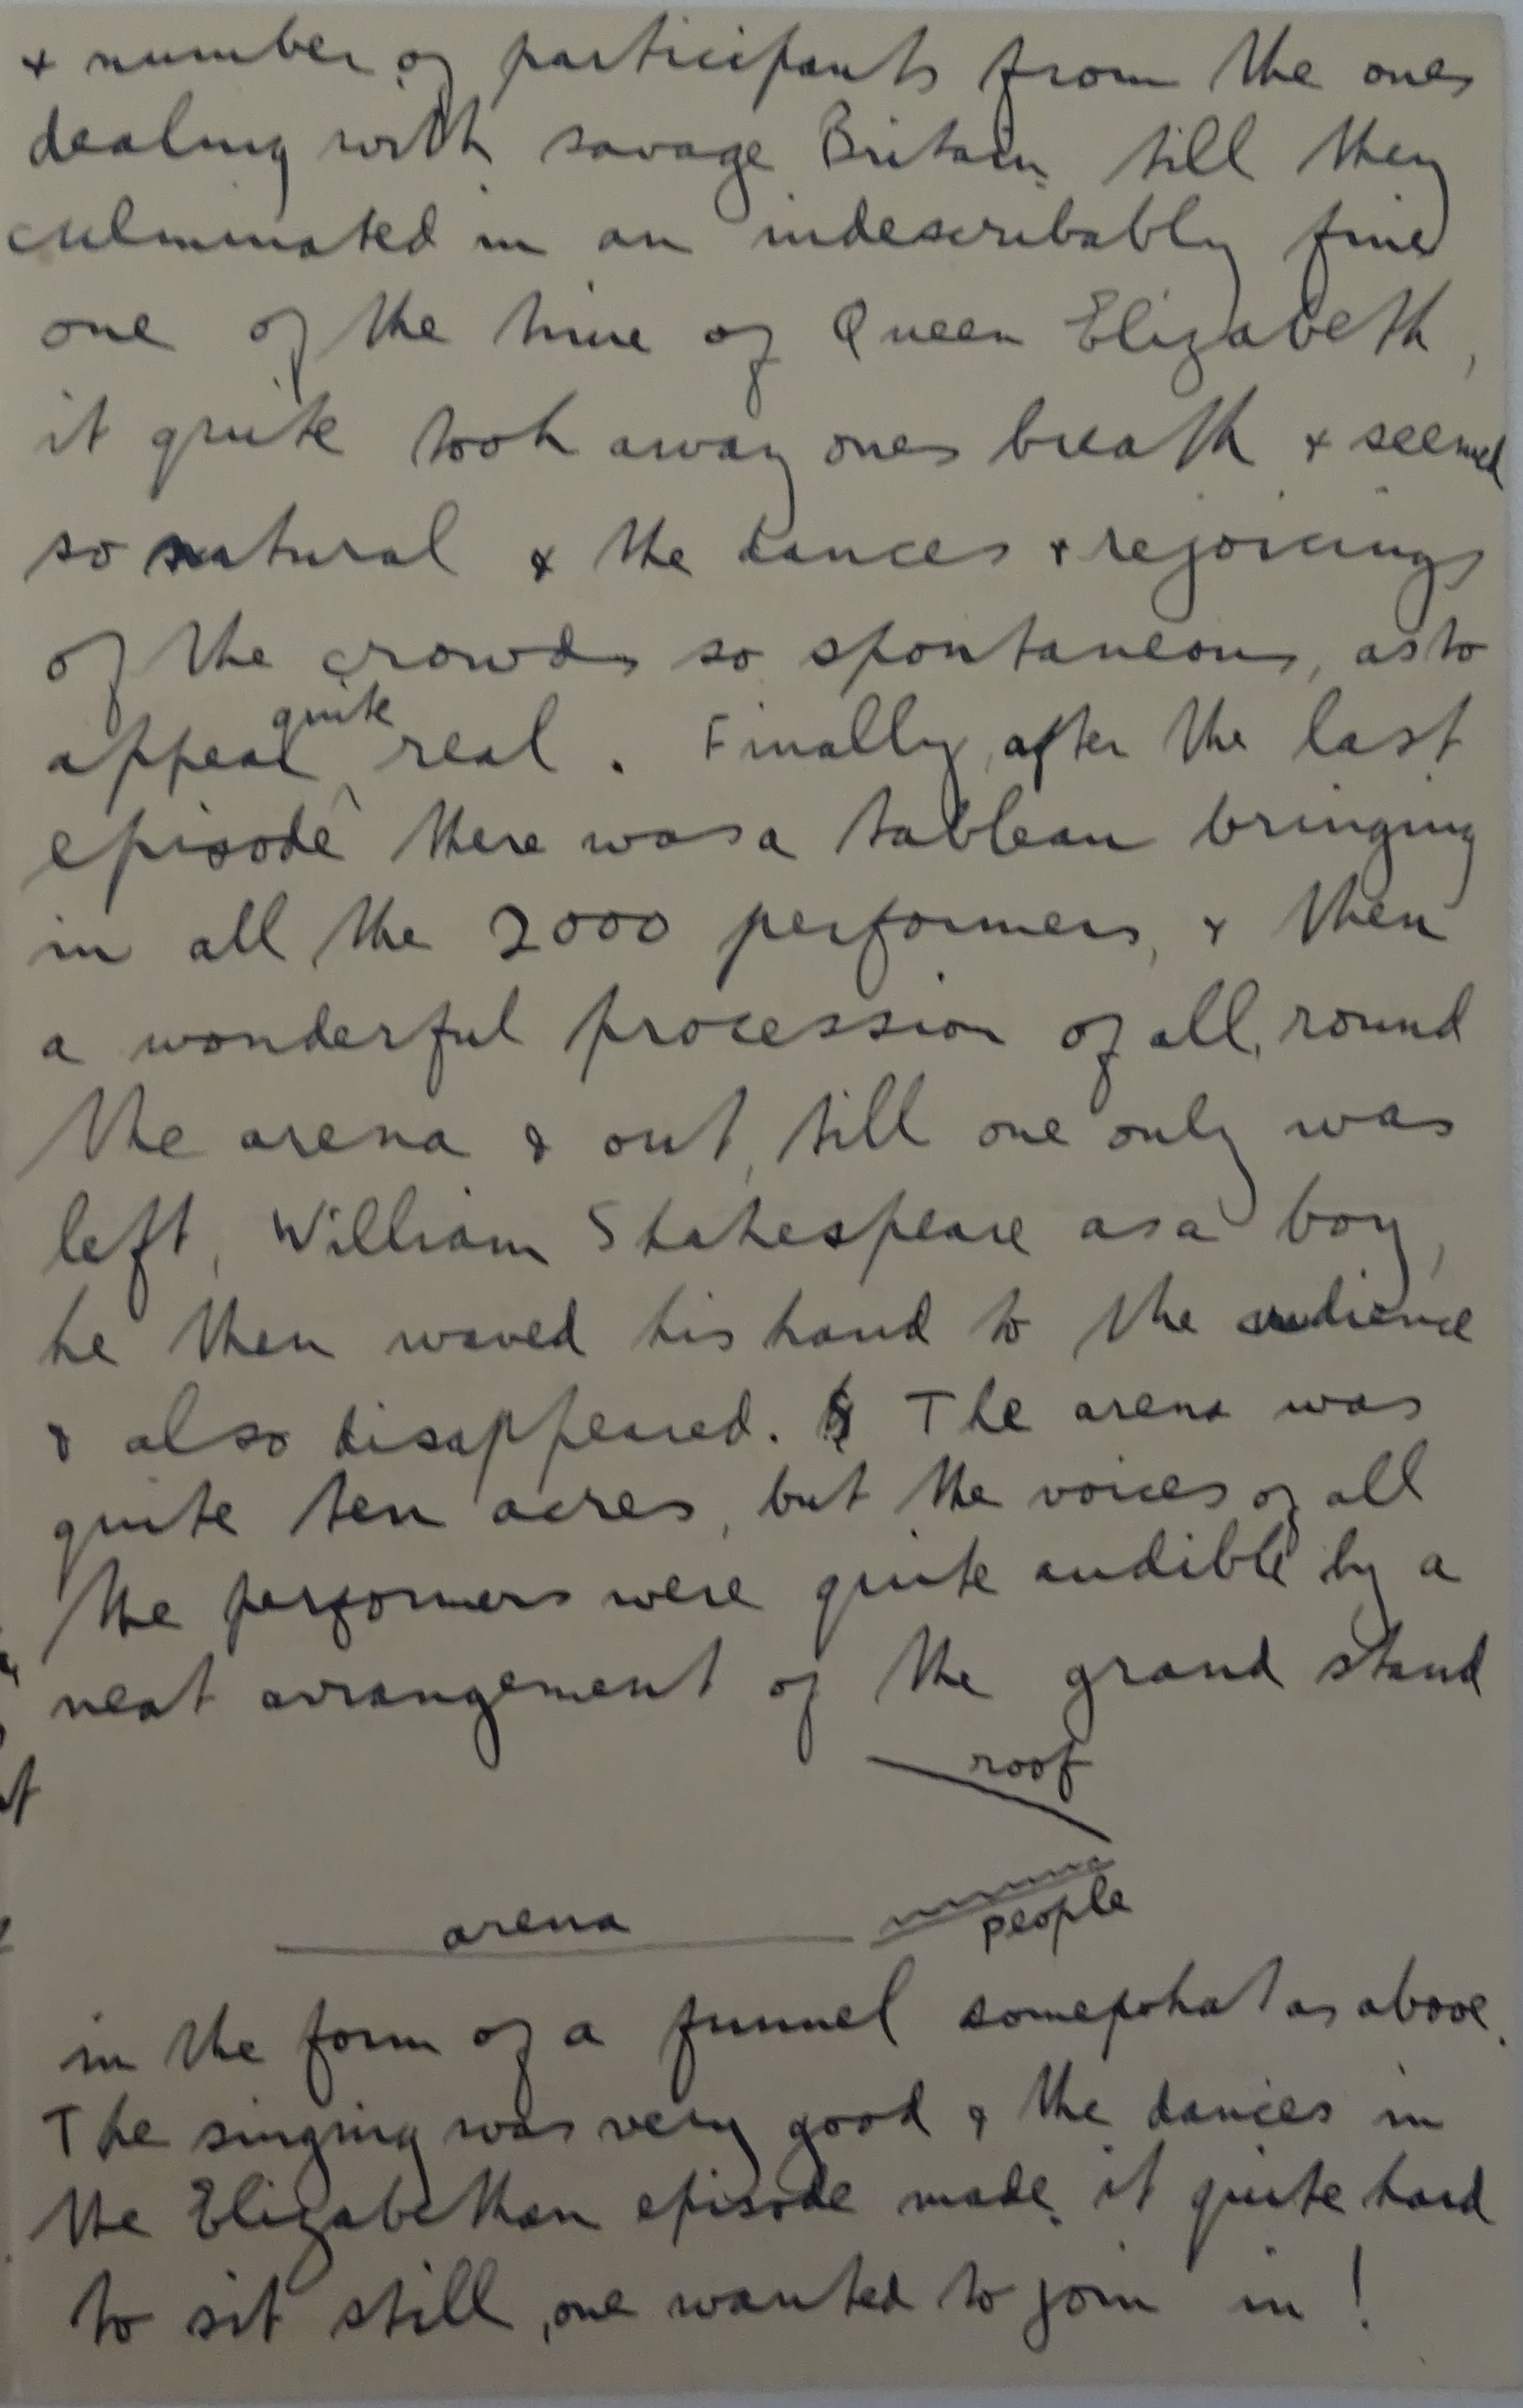 & number of participants from the ones
dealing with savage Britain till they
culminated in an indescribably fine
one of the time of Queen Elizabeth,
it quite took away ones breath & seemed
so natural & the dances & rejoicings
of the crowds so spontaneous, as to
appear quite real. Finally, after the last
episode there was a tableau bringing
in all the 2000 performers, & then
a wonderful procession of all, round
the arena & out, till one only was
left, William Shakespeare as a boy,
he then waved his hand to the audience
& also disappeared. The arena was
quite ten acres, but the voices of all
the performers were quite audible by a
neat arrangement of the grand stand
roof
people
arena
in the form of a funnel somewhat as above.
The singing was very good & the dances in
the Elizabethan episode made it quite hard
to sit still, one wanted to join in!